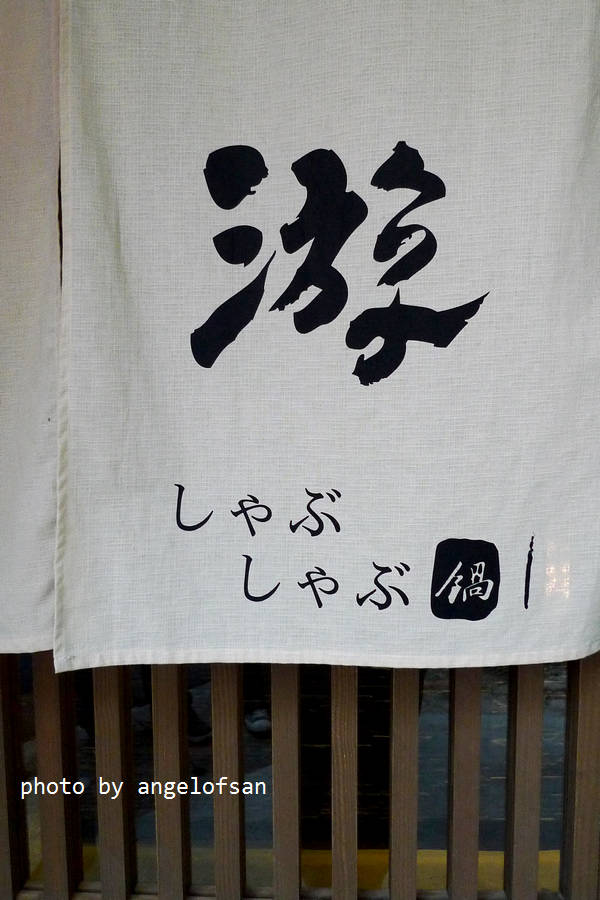 游
しゃぶ
しゃぶ 鍋
photo by angelofsan